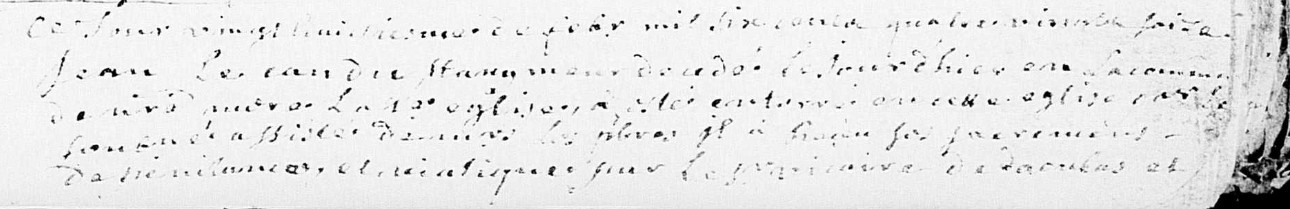 Ce Jour vingt huictiesme de febr mil six cents quatre vingts seize
Jean Le can du Stanymeur decedé le jour d'hier en la comm
de nre mere La Ste eglise, a esté enterré en cette eglise par le
soussigné assisté de mrs les pbres Il a receu ses sacremens
de penitance, et viatique par Le vicaire de daoulas et